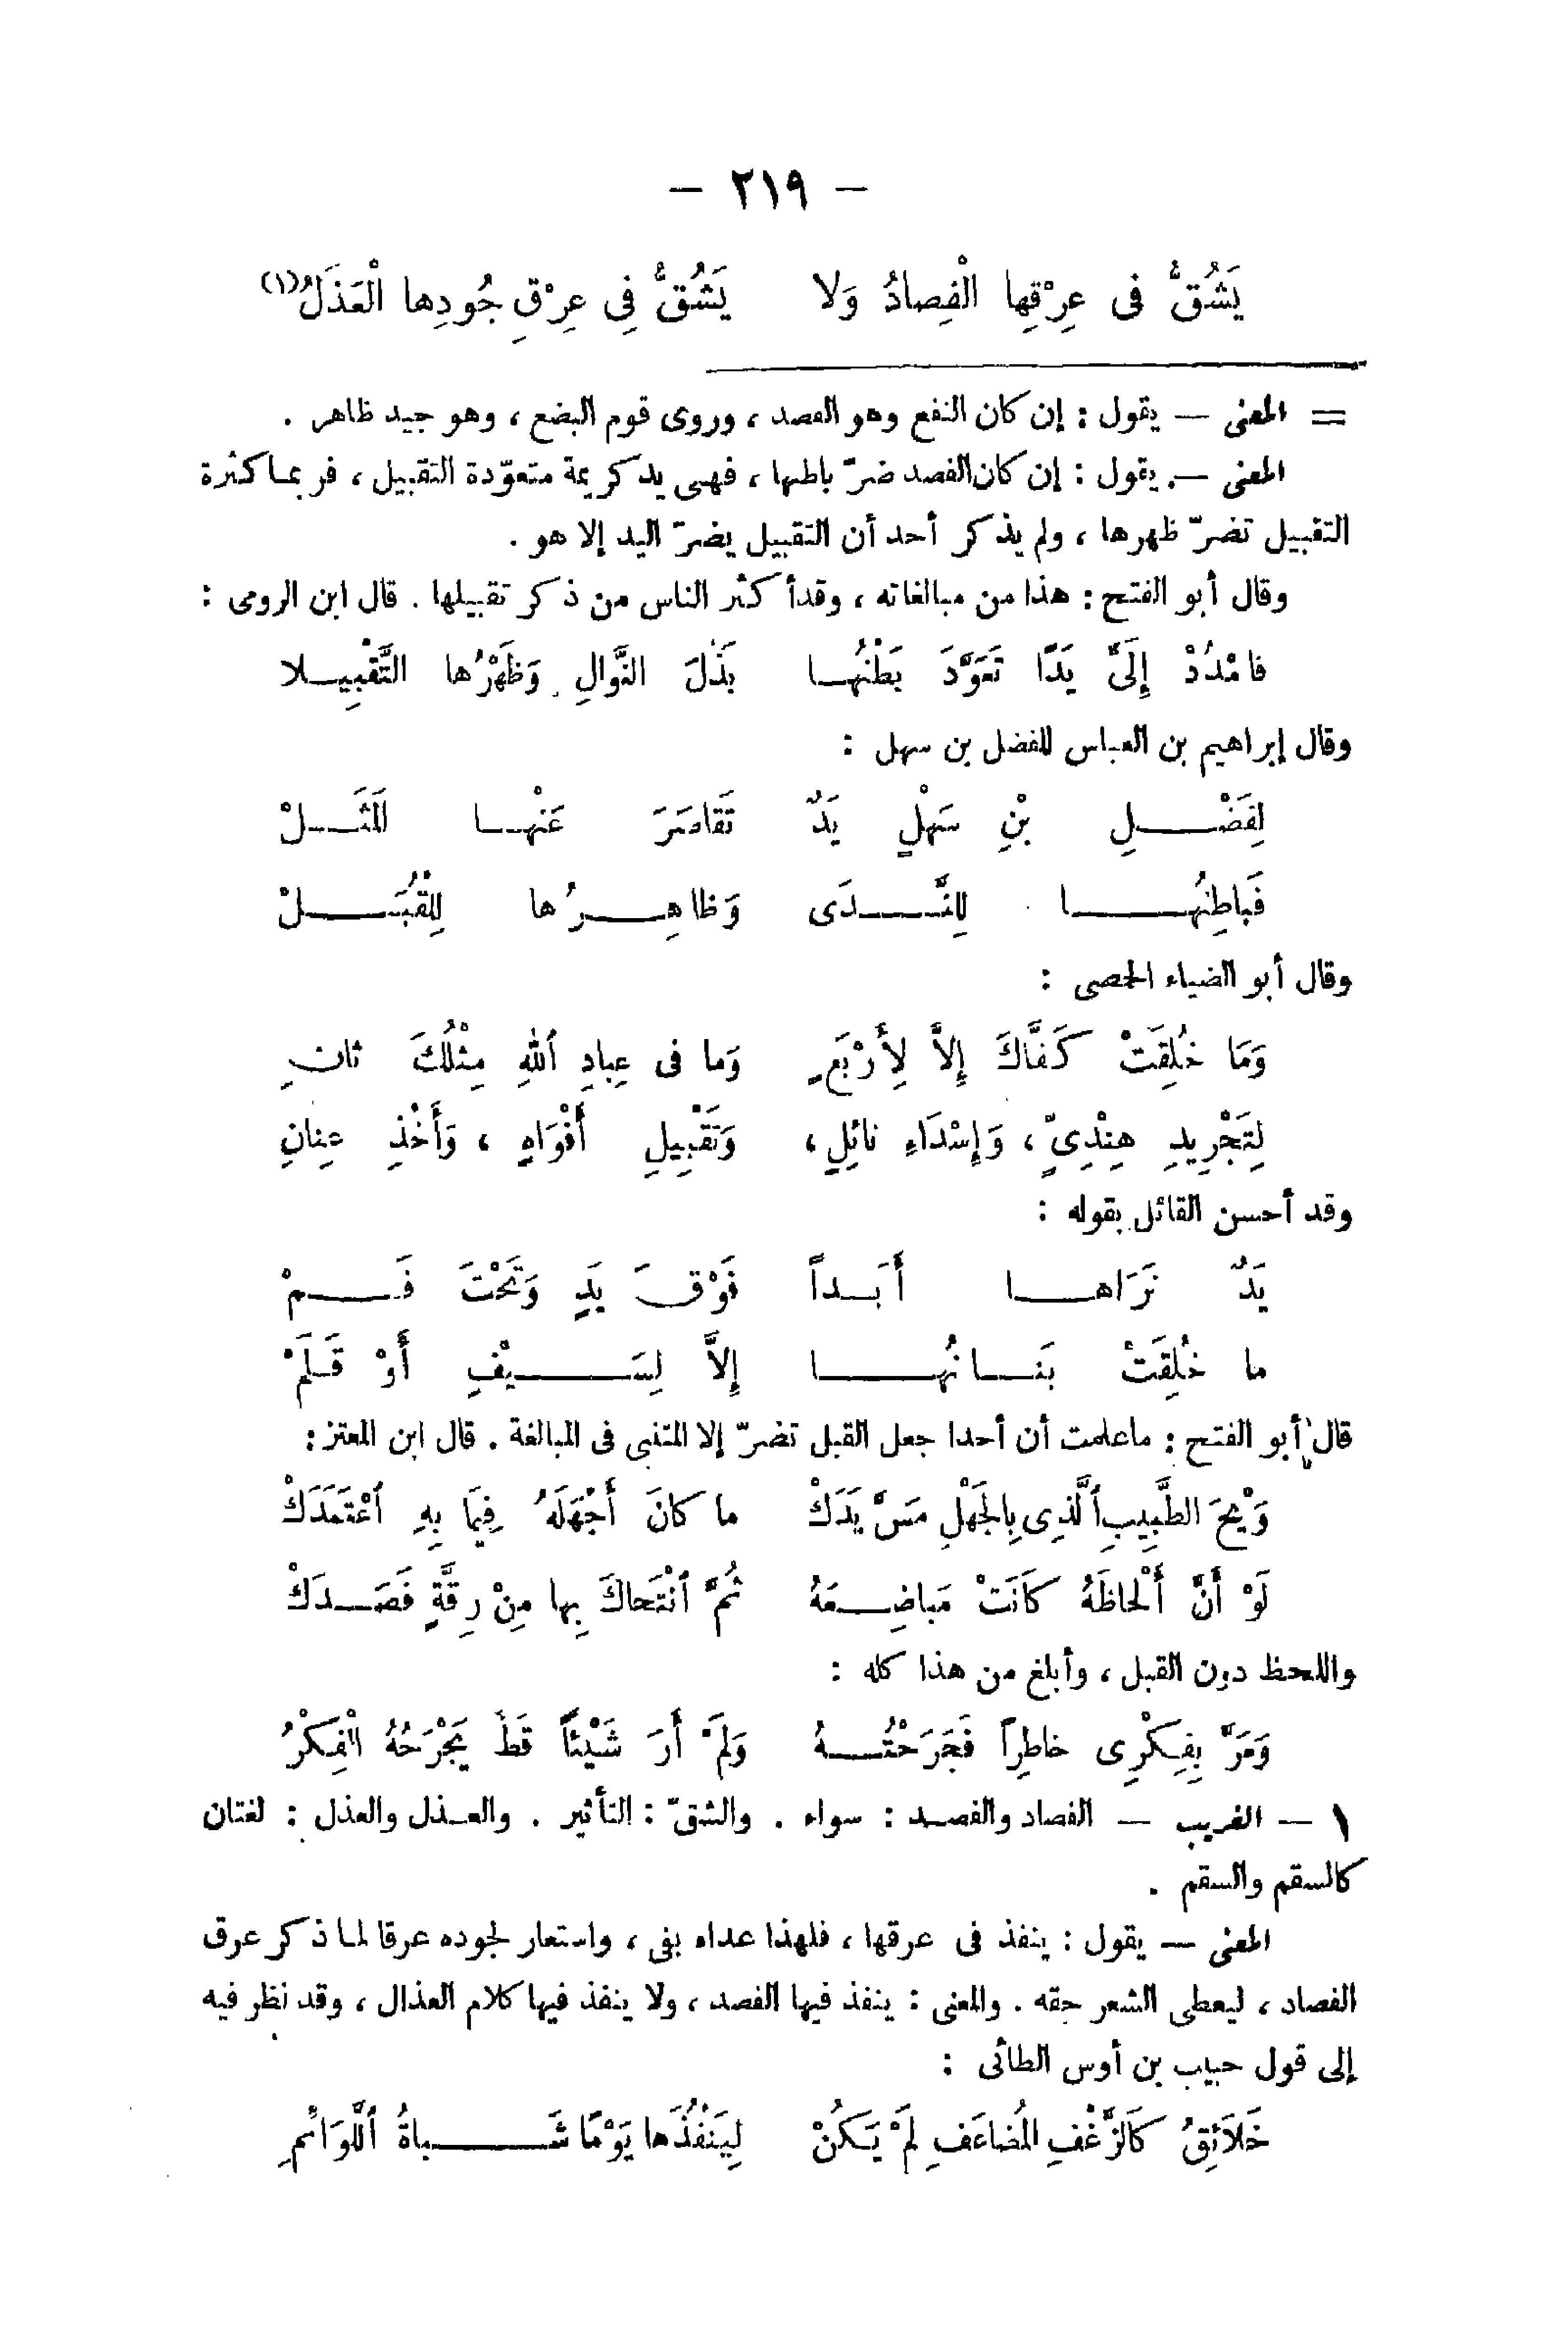 — ٢١٩ —
يَشُقُّ فى عِرْقِها الْفِصادُ وَلا يَشُقُّ فِى عِرْقِ جُودِها الْعَذَلُ(١)
= المعنى — يقول : إن كان النفع وهو الفصد ، وروى قوم البضع ، وهو جيد ظاهر .
المعنى — يقول : إن كان الفصد ضرّ باطنها ، فهى يد كريمة متعوّدة التقبيل ، فربما كثرة
التقبيل تضرّ ظهرها ، ولم يذكر أحد أن التقبيل يضرّ اليد إلا هو .
وقال أبو الفتح : هذا من مبالغاته ، وقد أكثر الناس من ذكر تقبيلها . قال ابن الرومى :
فامْدُدْ إِلَىَّ يَدًا تَعَوَّدَ بَطْنُهـا بَذْلَ النَّوالِ وَظَهْرُها التَّقْبِيـلا
وقال إبراهيم بن العباس للفضل بن سهل :
لِفَضْـلِ بْنِ سَهْلٍ يَدٌ تَقَاصَرَ عَنْهـا المَثَـلْ
فَباطِنُهـا لِلنَّـدَى وَظاهِـرُها لِلْقُبَـلْ
وقال أبو الضياء الحمصى :
وَمَا خُلِقَتْ كَفَّاكَ إِلاَّ لِأَرْبَعٍ وَما فى عِبادِ ٱللهِ مِثْلُكَ ثانِ
لِتَجْرِيدِ هِنْدِىٍّ ، وَإِسْدَاءِ نائِلٍ ، وَتَقْبِيلِ أَفْوَاهٍ ، وَأَخْذِ عِنانِ
وقد أحسن القائل بقوله :
يَدٌ نَرَاهـا أَبَـداً فَوْقَ يَدٍ وَتَحْتَ فَـمْ
ما خُلِقَتْ بَنـانُهـا إِلاَّ لِسَـيْفٍ أَوْ قَـلَمْ
قال أبو الفتح : ماعلمت أن أحدا جعل القبل تضرّ إلا المتنبى فى المبالغة . قال ابن المعتز :
وَيْحَ الطَّبِيبِ ٱلَّذِى بِالجَهْلِ مَسَّ يَدَكْ ما كانَ أَجْهَلَهُ فِيمَا بِهِ ٱعْتَمَدَكْ
لَوْ أَنَّ أَلْحاظَهُ كَانَتْ مَباضِـعَهُ ثُمَّ ٱنْتَحاكَ بِها مِنْ رِقَّةٍ فَصَـدَكْ
واللحظ دون القبل ، وأبلغ من هذا كله :
وَمَرَّ بِفِكْرِى خاطِراً فَجَرَحْتُـهُ وَلَمْ أَرَ شَيْئاً قَطُّ يَجْرَحُهُ الْفِكْرُ
١ — الغريب — الفصاد والفصـد : سواء . والشقّ : التأثير . والعـذل والعذل : لغتان
كالسقم والسقم .
المعنى — يقول : ينفذ فى عرقها ، فلهذا عداه بفى ، واستعار لجوده عرقا لما ذكر عرق
الفصاد ، ليعطى الشعر حقه . والمعنى : ينفذ فيها الفصد ، ولا ينفذ فيها كلام العذال ، وقد نظر فيه
إلى قول حبيب بن أوس الطائى :
خَلاَئِقُ كَالزَّغْفِ المُضاعَفِ لَمْ يَكُنْ لِيَنْفُذَها يَوْمًا شَـباةُ ٱللَّوَائِمِ